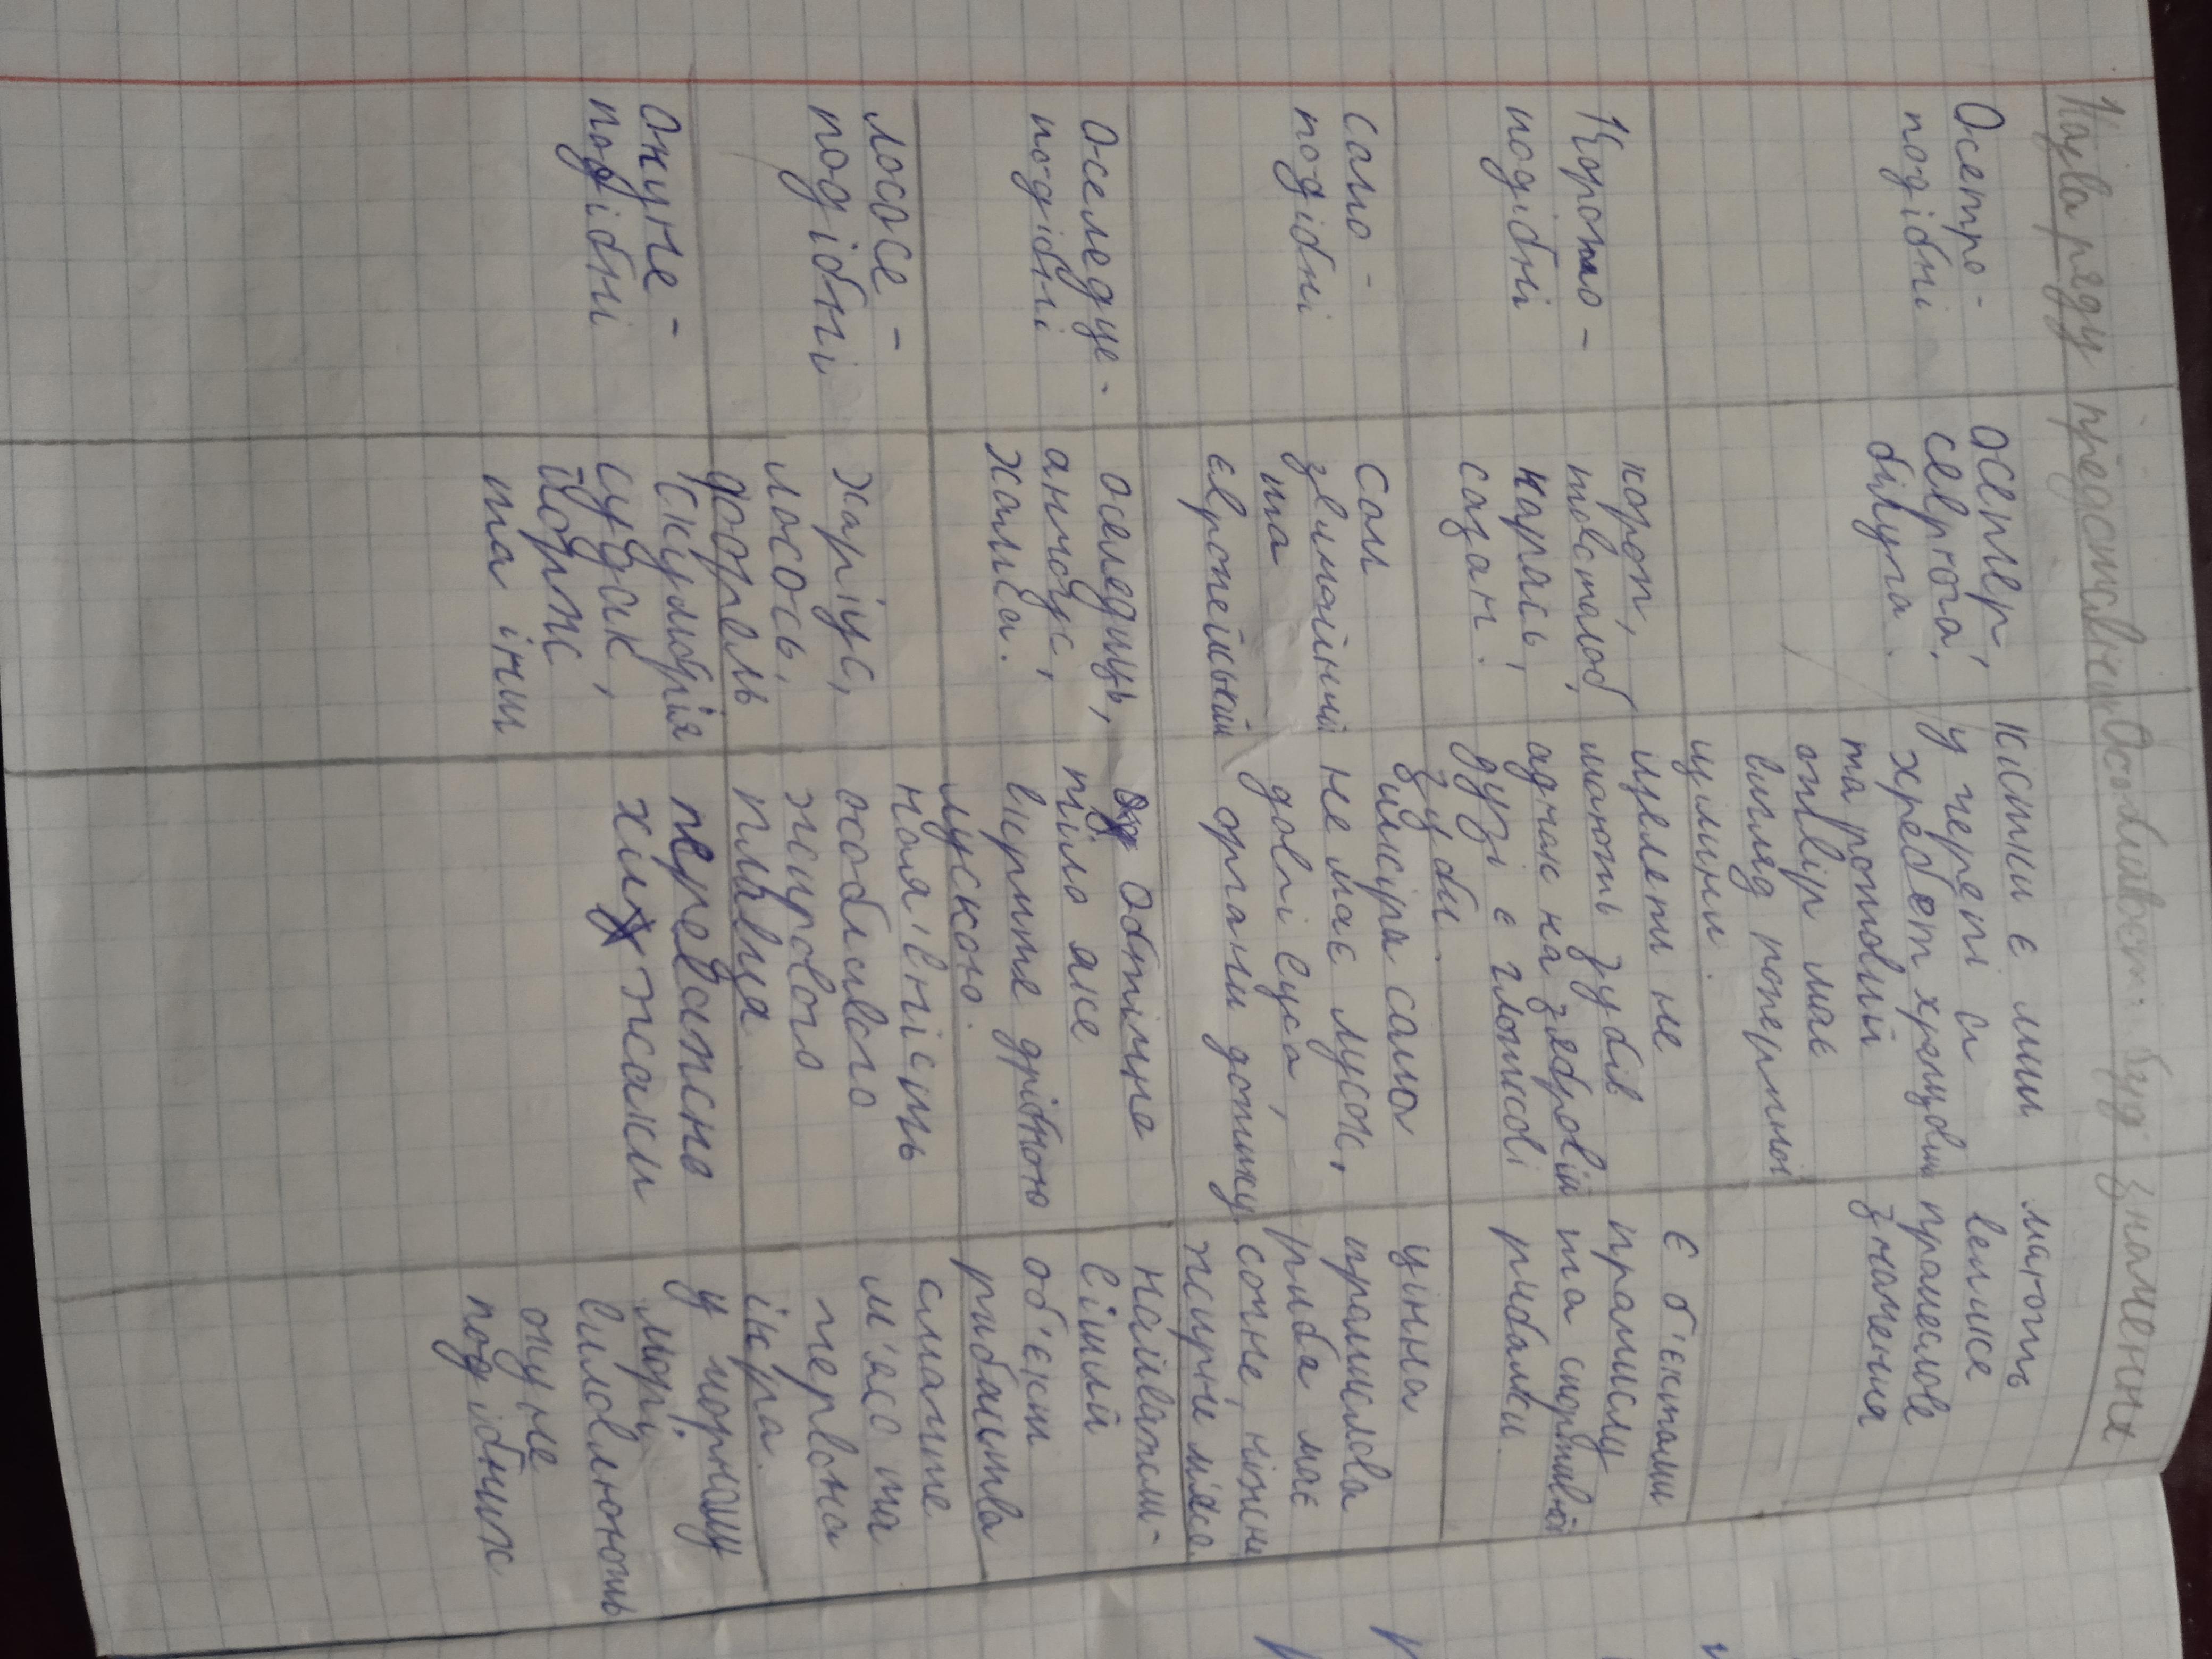 Назва ряду представники Особливості буд значення
Осетро-
подібні
осетер,
севрюга,
білуга.
кістки є лиш
у черепі а
хребет хрящовий
та ротовий
отвір має
вигляд поперечної
щілини.
мають
велике
промеслове
значення
Коропо-
подібні
короп,
товстолоб,
карась,
сазан.
щелепи не
мають зубів
однак на зябровій
дузі є глоткові
зуби.
Є б'єктами
промислу
та спортивної
рибалки
Сомо-
подібні
Сом
звичайний
та
європейський
шкіра сома
не має лусок,
довгі вуса,
органи дотику
цінна
промислова
риба має
сочне, ніжне
жирне м'ясо.
Оселедце-
подібні
оселедиць,
анчоус,
хамса.
Обтічне
тіло яке
вкрите дрібною
лускою.
найважли-
віший
об'єкт
рибацтва
лососе-
подібні
харіус,
лосось,
форель
наявність
особливого
жирового
плавця
смачне
м'ясо та
червона
ікра.
окуне-
подібні
Скумбрія
судак,
йорж
та інш
переважно
хижаки
у чорному
морі,
виловлюють
окуне
подібних